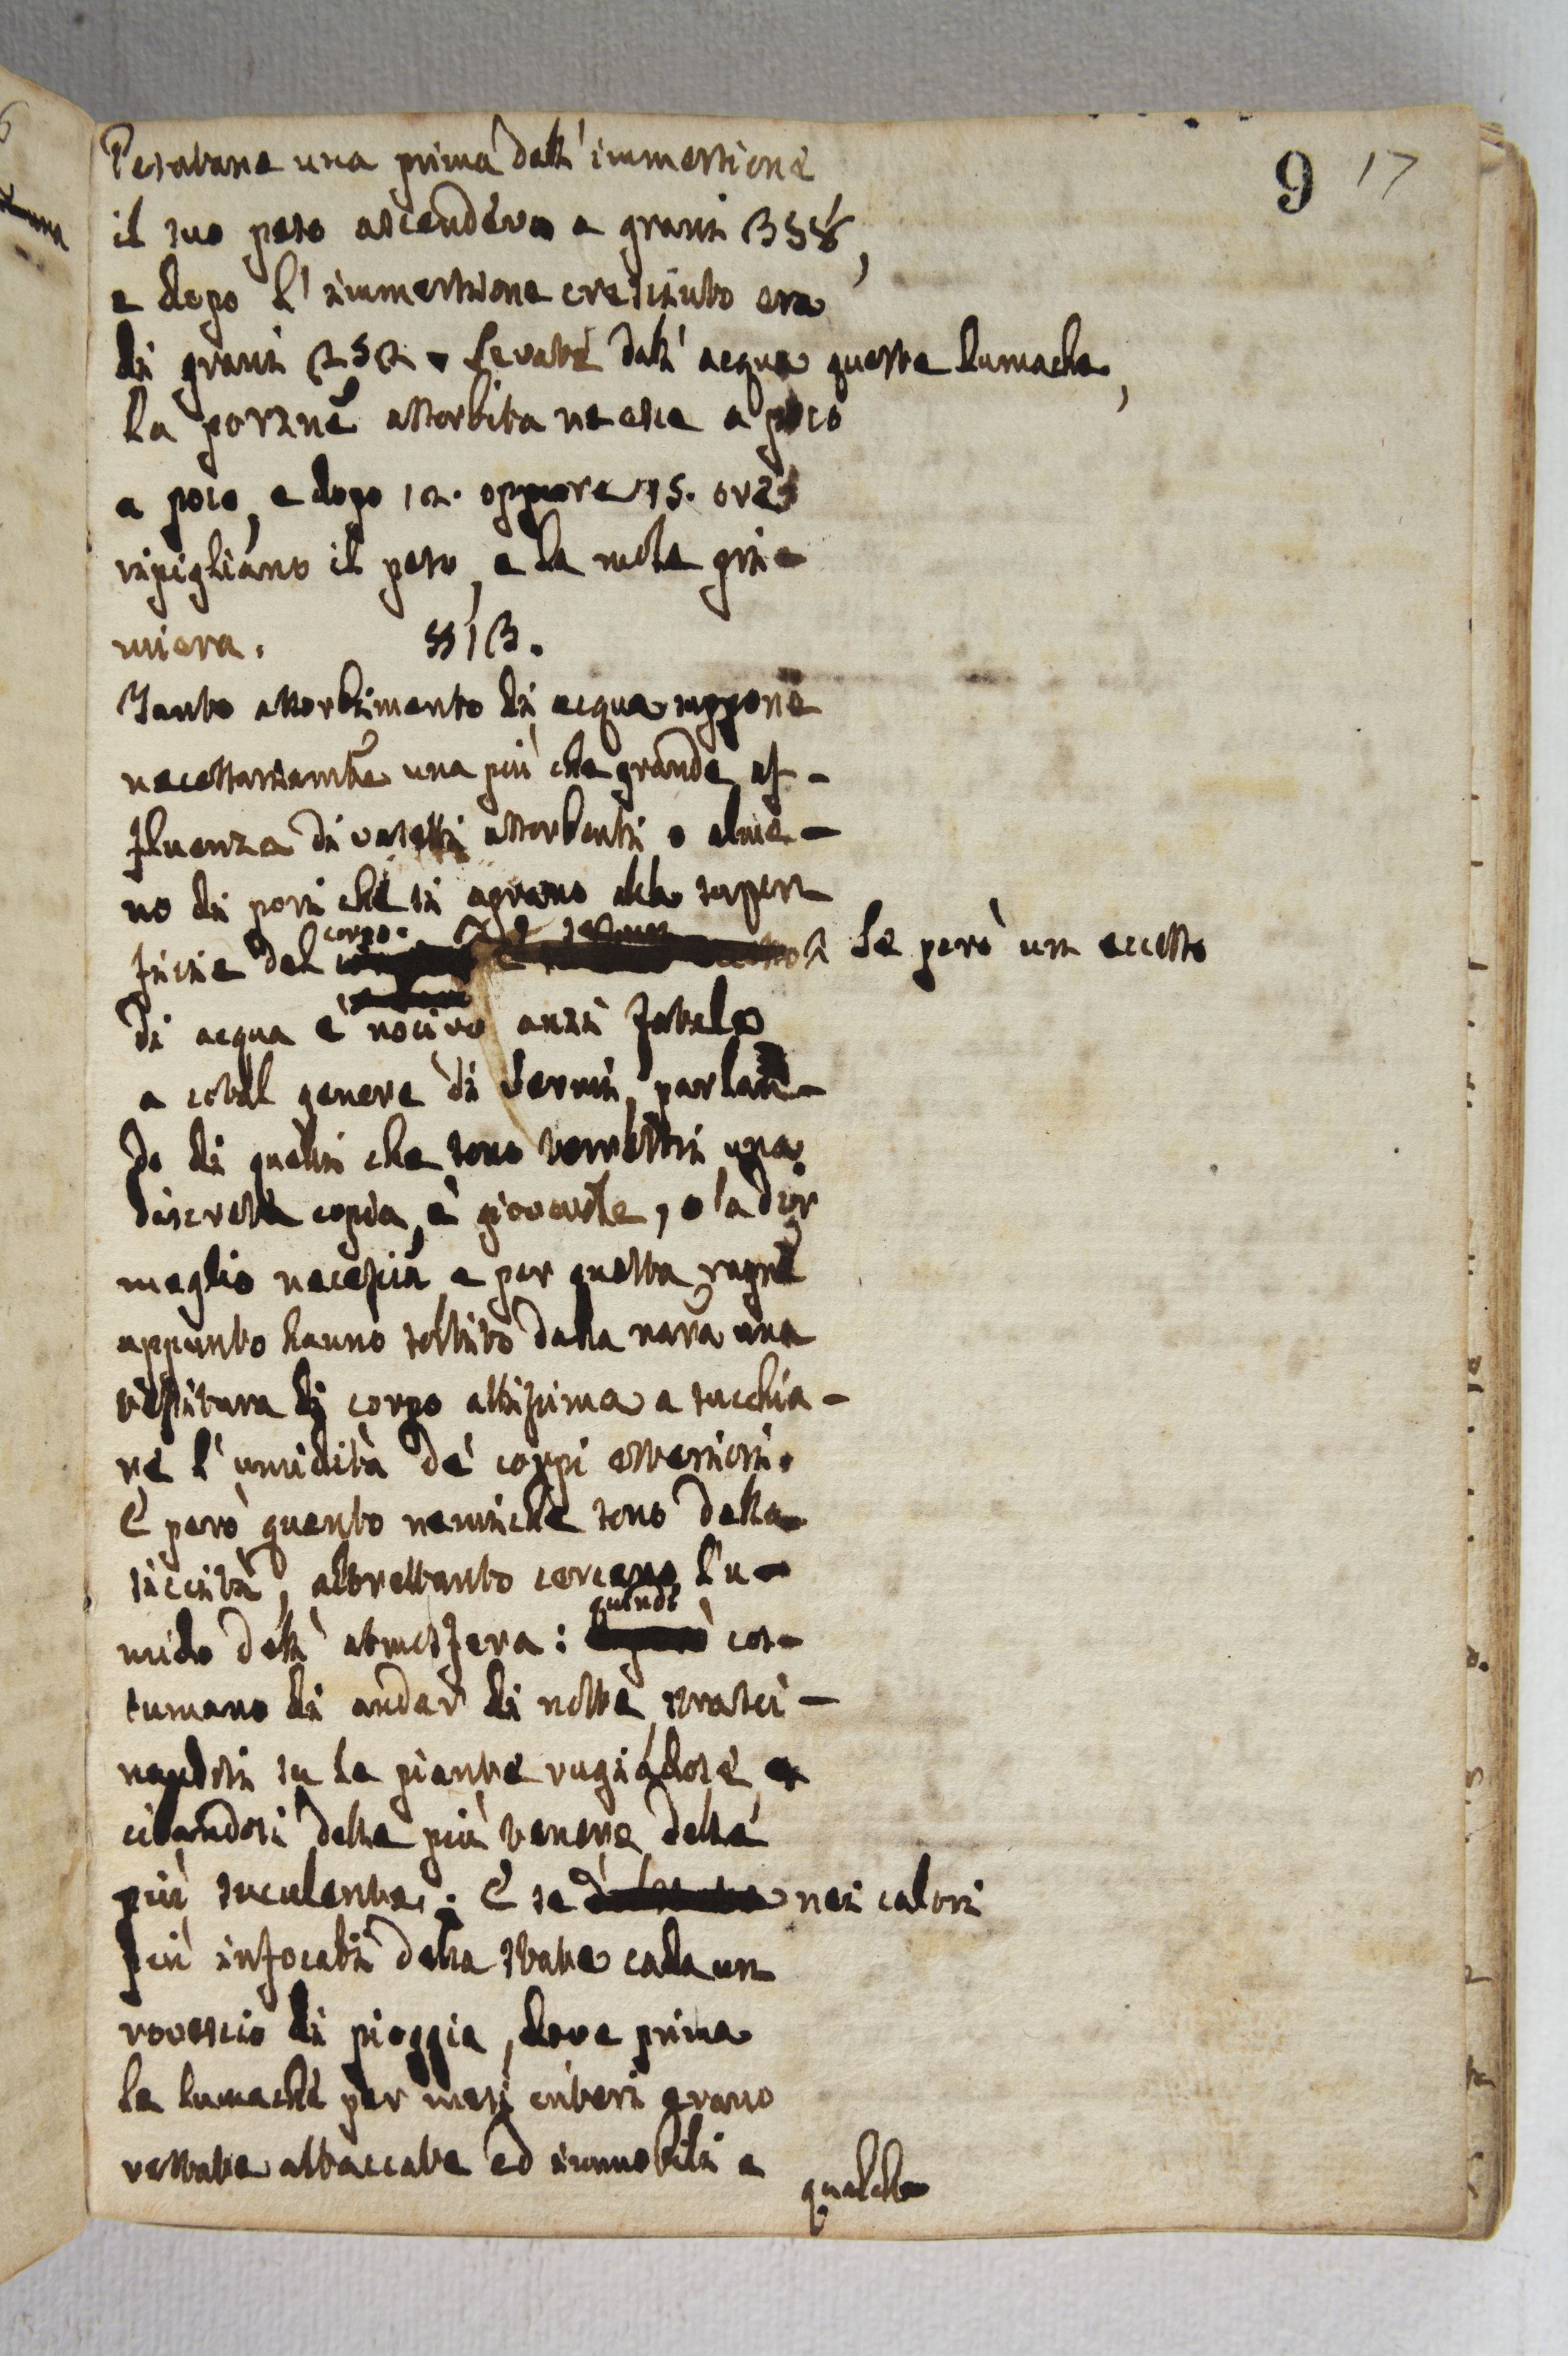 9 17
Pesatane una prima dall' immersione
il suo peso ascendeva a grani 358,
e dopo l' immersione cresciuto era
di grani 252. Levate dall' acqua queste lumache,
la porzne assorbita ne esce a poco
a poco, e dopo 12. oppure 15. ore
ripigliano il peso, e la mole pri-
miera. §13.
Tanto assorbimento di acqua suppone
necessariamte una più che grande af-
fluenza di vasetti assorbenti o alme-
no di pori che si aprano alla super
ficie del corpo. Se però un eccesso
di acqua è nocivo anzi fatale
a cotal genere di Vermi, parlan-
do di quelli che sono terrestri una
discreta copia è giovevole, o a dir
meglio necessia e per questa ragne
appunto hanno sortito dalla nara una
testitura di corpo attissima a succhia-
re l' umidità de' corpi esteriori.
E però quanto nemiche sono della
siccità, altrettanto cercano l'u-
mido dell' atmosfera: quindi cos-
tumano di andar di notte strasci-
nandosi su le piante rugiadose, e
cibandosi delle più tenere, delle
più suculente. E se nei calori
più infocati della state cada un
rovescio di pioggia, dove prima
le lumache per mesi interi erano
restate attaccate ed immobili a
qualche